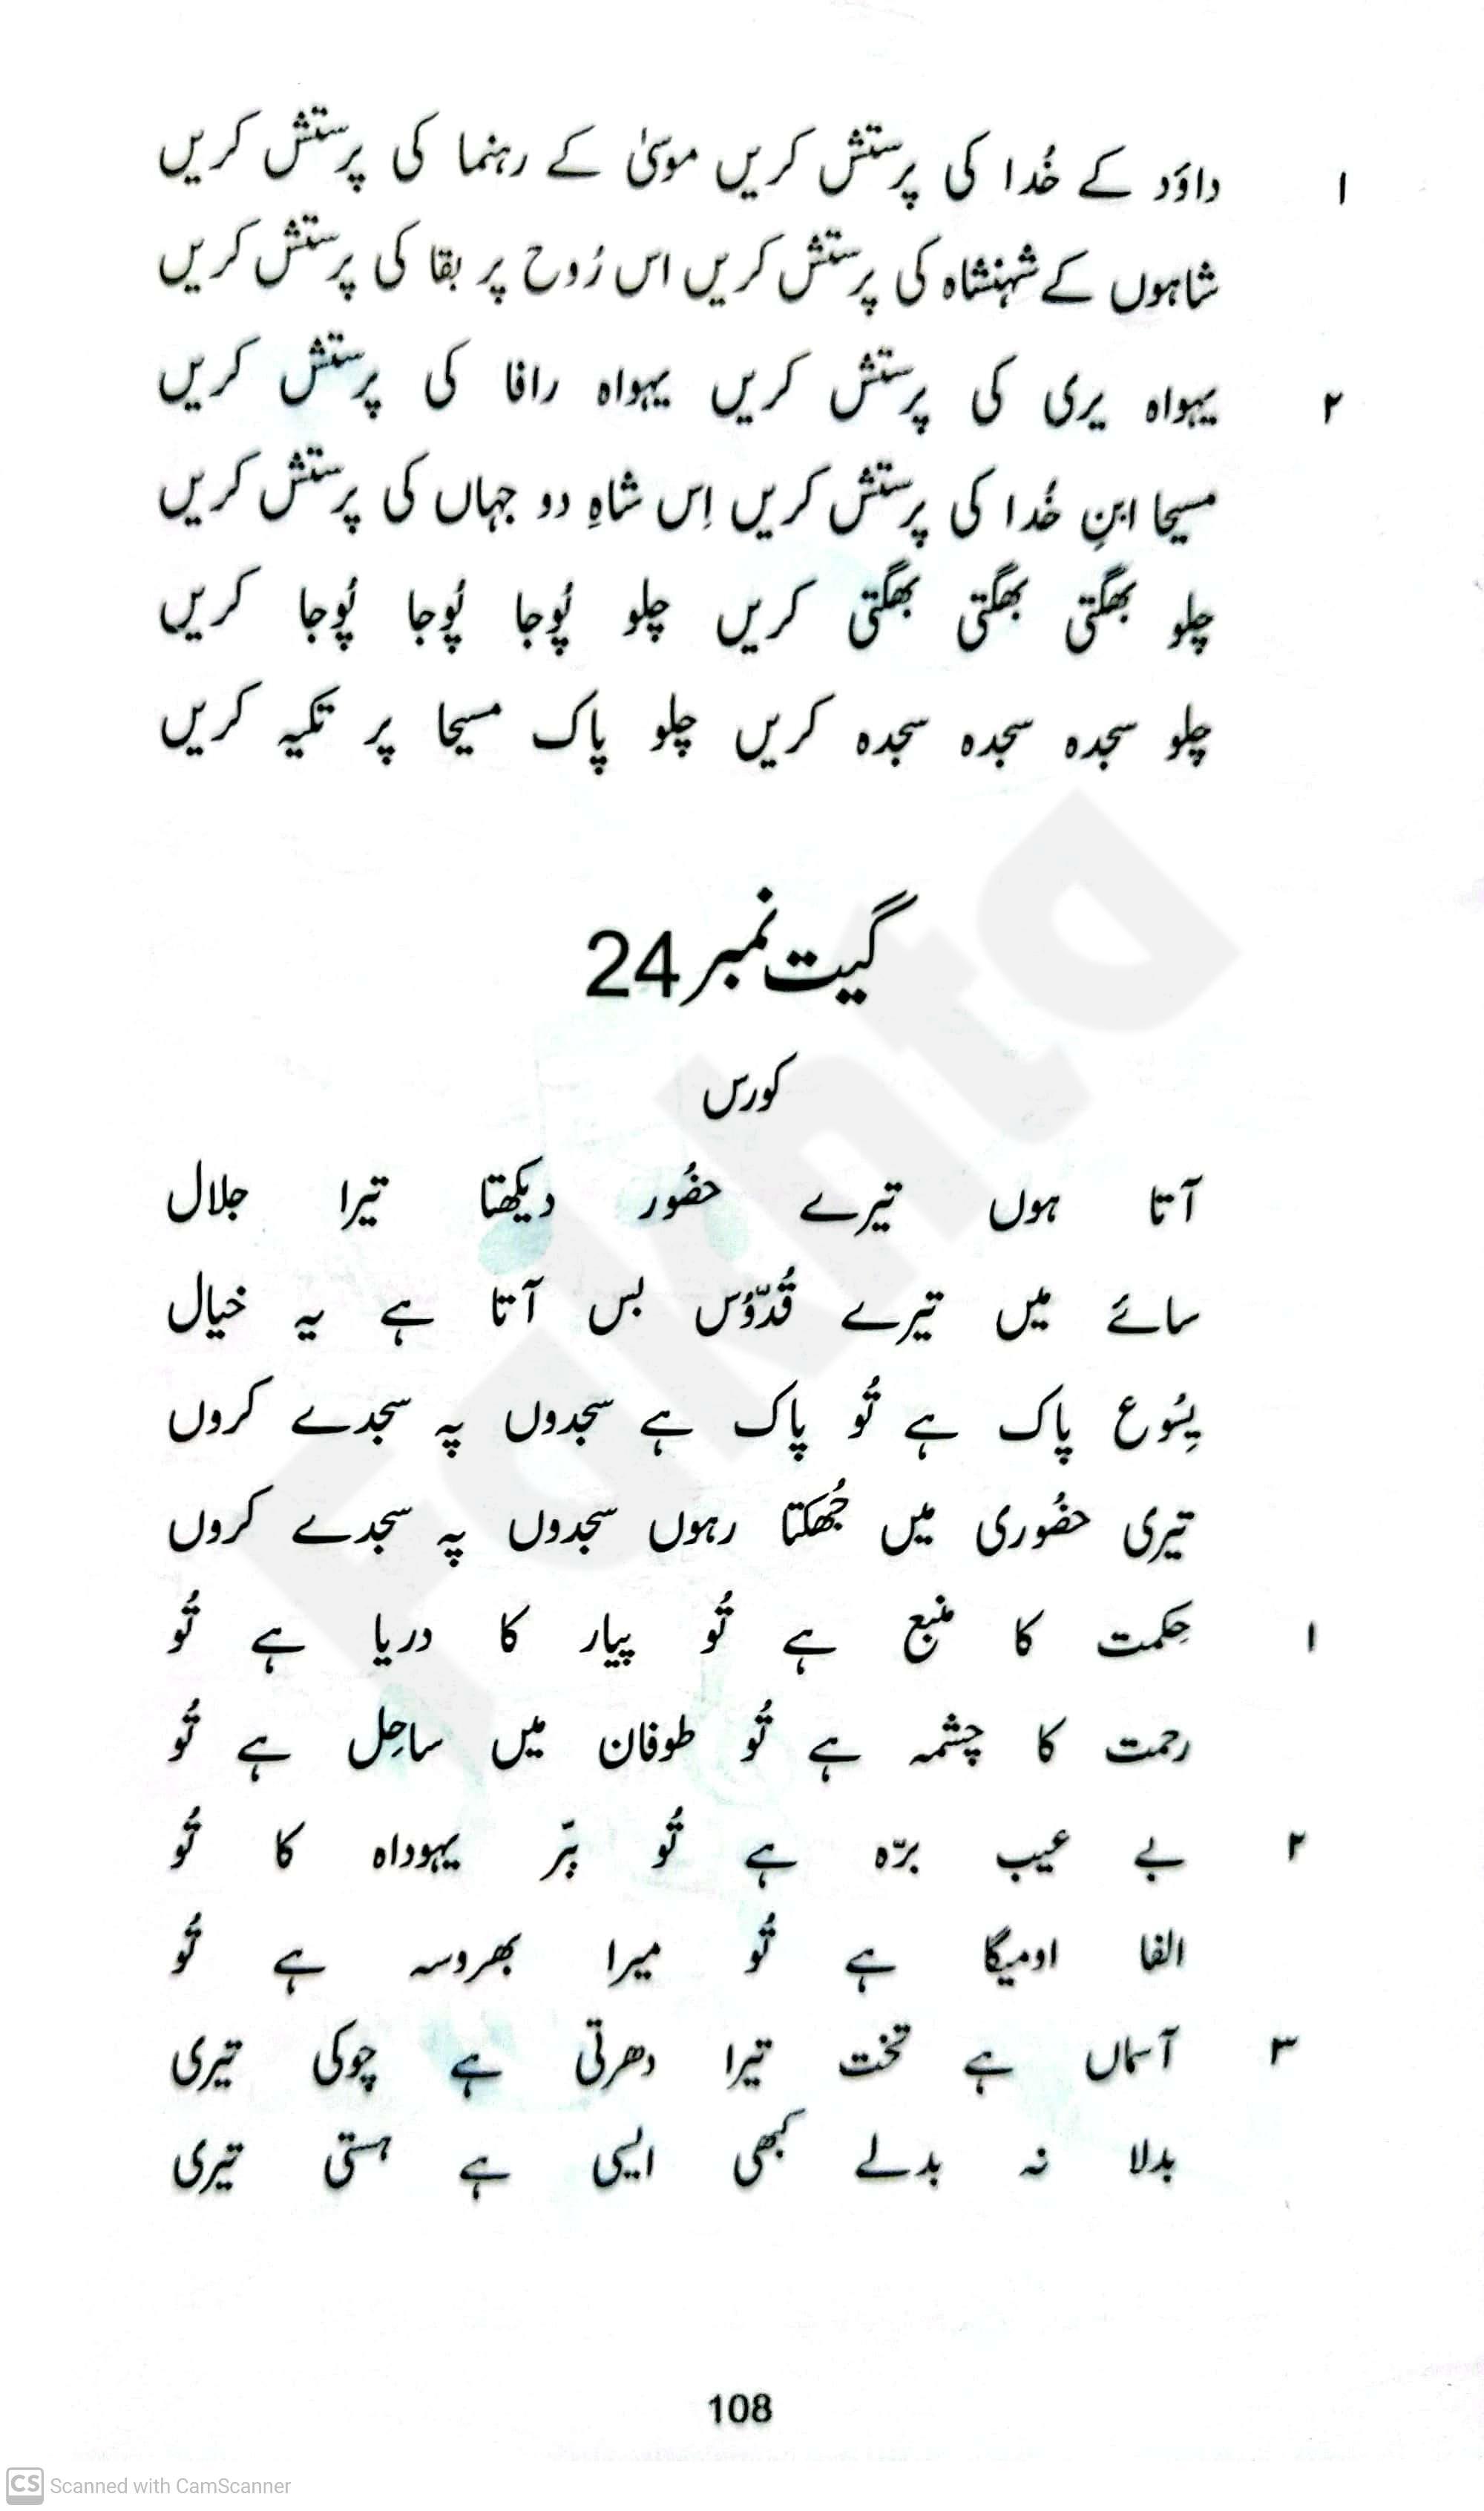 ۱ داؤد کے خُدا کی پرستش کریں موسیٰ کے رہنما کی پرستش کریں
شاہوں کے شہنشاہ کی پرستش کریں اس رُوح پر بقا کی پرستش کریں
۲ یہواہ یری کی پرستش کریں یہواہ رافا کی پرستش کریں
مسیحا ابنِ خُدا کی پرستش کریں اِس شاہِ دو جہاں کی پرستش کریں
چلو بھگتی بھگتی بھگتی کریں چلو پُوجا پُوجا پُوجا کریں
چلو سجدہ سجدہ سجدہ کریں چلو پاک مسیحا پر تکیہ کریں
گیت نمبر 24
کورس
آتا ہوں تیرے حضُور دیکھتا تیرا جلال
سائے میں تیرے قُدّوُس بس آتا ہے یہ خیال
یِسُوع پاک ہے تُو پاک ہے سجدوں پہ سجدے کروں
تیری حضُوری میں جُھکتا رہوں سجدوں پہ سجدے کروں
۱ حِکمت کا منبع ہے تُو پیار کا دریا ہے تُو
رحمت کا چشمہ ہے تُو طوفان میں ساحِل ہے تُو
۲ بے عیب برّہ ہے تُو ببّر یہوداہ کا تُو
الفا اومیگا ہے تُو میرا بھروسہ ہے تُو
۳ آسماں ہے تخت تیرا دھرتی ہے چوکی تیری
بدلا نہ بدلے کبھی ایسی ہے ہستی تیری
108
Fakhta
CS Scanned with CamScanner